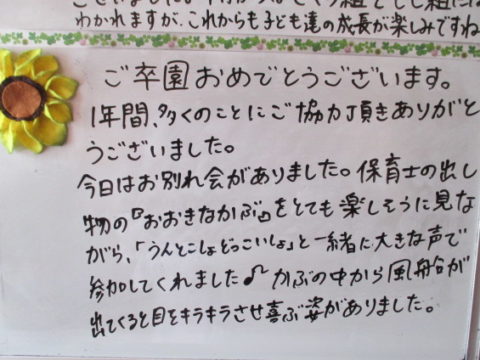 わかれますが、これからも子ども達の成長が楽しみですね
ご卒園おめでとうございます。
1年間、多くのことにご協力頂きありがと
うございました。
今日はお別れ会がありました。保育士の出し
物の『おおきなかぶ』をとても楽しそうに見な
がら、「うんとこしょどっこいしょ」と一緒に大きな声で
参加してくれました♪かぶの中から風船が
出てくると目をキラキラさせ喜ぶ姿がありました。